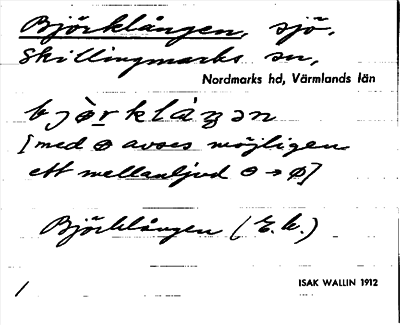 Björklången, sjö.
Skillingmarks sn,
Nordmarks hd, Värmlands län
[med ɵ avses möjligen
ett mellanljud ɵ → ø]
Björklången (E.k.)
ISAK WALLIN 1912
/